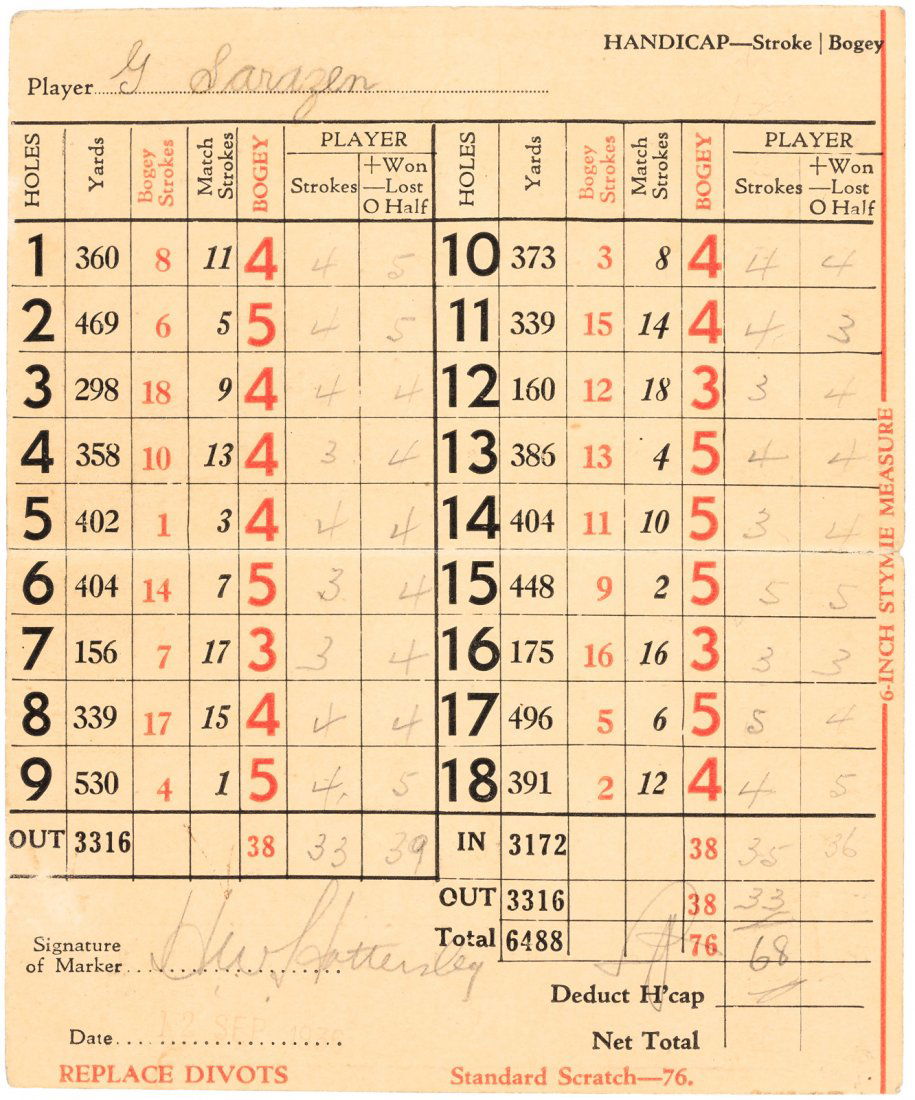 HANDICAP—Stroke | Bogey
Player G Sarazen
HOLES Yards Bogey Strokes Match Strokes BOGEY PLAYER Strokes +Won —Lost O Half HOLES Yards Bogey Strokes Match Strokes BOGEY PLAYER Strokes +Won —Lost O Half
1 360 8 11 4 4 5 10 373 3 8 4 4 4
2 469 6 5 5 4 5 11 339 15 14 4 4 3
3 298 18 9 4 4 4 12 160 12 18 3 3 4
4 358 10 13 4 3 4 13 386 13 4 5 4 4
5 402 1 3 4 4 4 14 404 11 10 5 3 4
6 404 14 7 5 3 4 15 448 9 2 5 5 5
7 156 7 17 3 3 4 16 175 16 16 3 3 3
8 339 17 15 4 4 4 17 496 5 6 5 5 4
9 530 4 1 5 4 5 18 391 2 12 4 4 5
OUT 3316 38 33 39 IN 3172 38 35 36
OUT 3316 38 33
Total 6488 76 68
Signature of Marker H W Hattersley
Deduct H'cap
Date 12 SEP
Net Total
REPLACE DIVOTS
Standard Scratch—76.
6-INCH STYMIE MEASURE